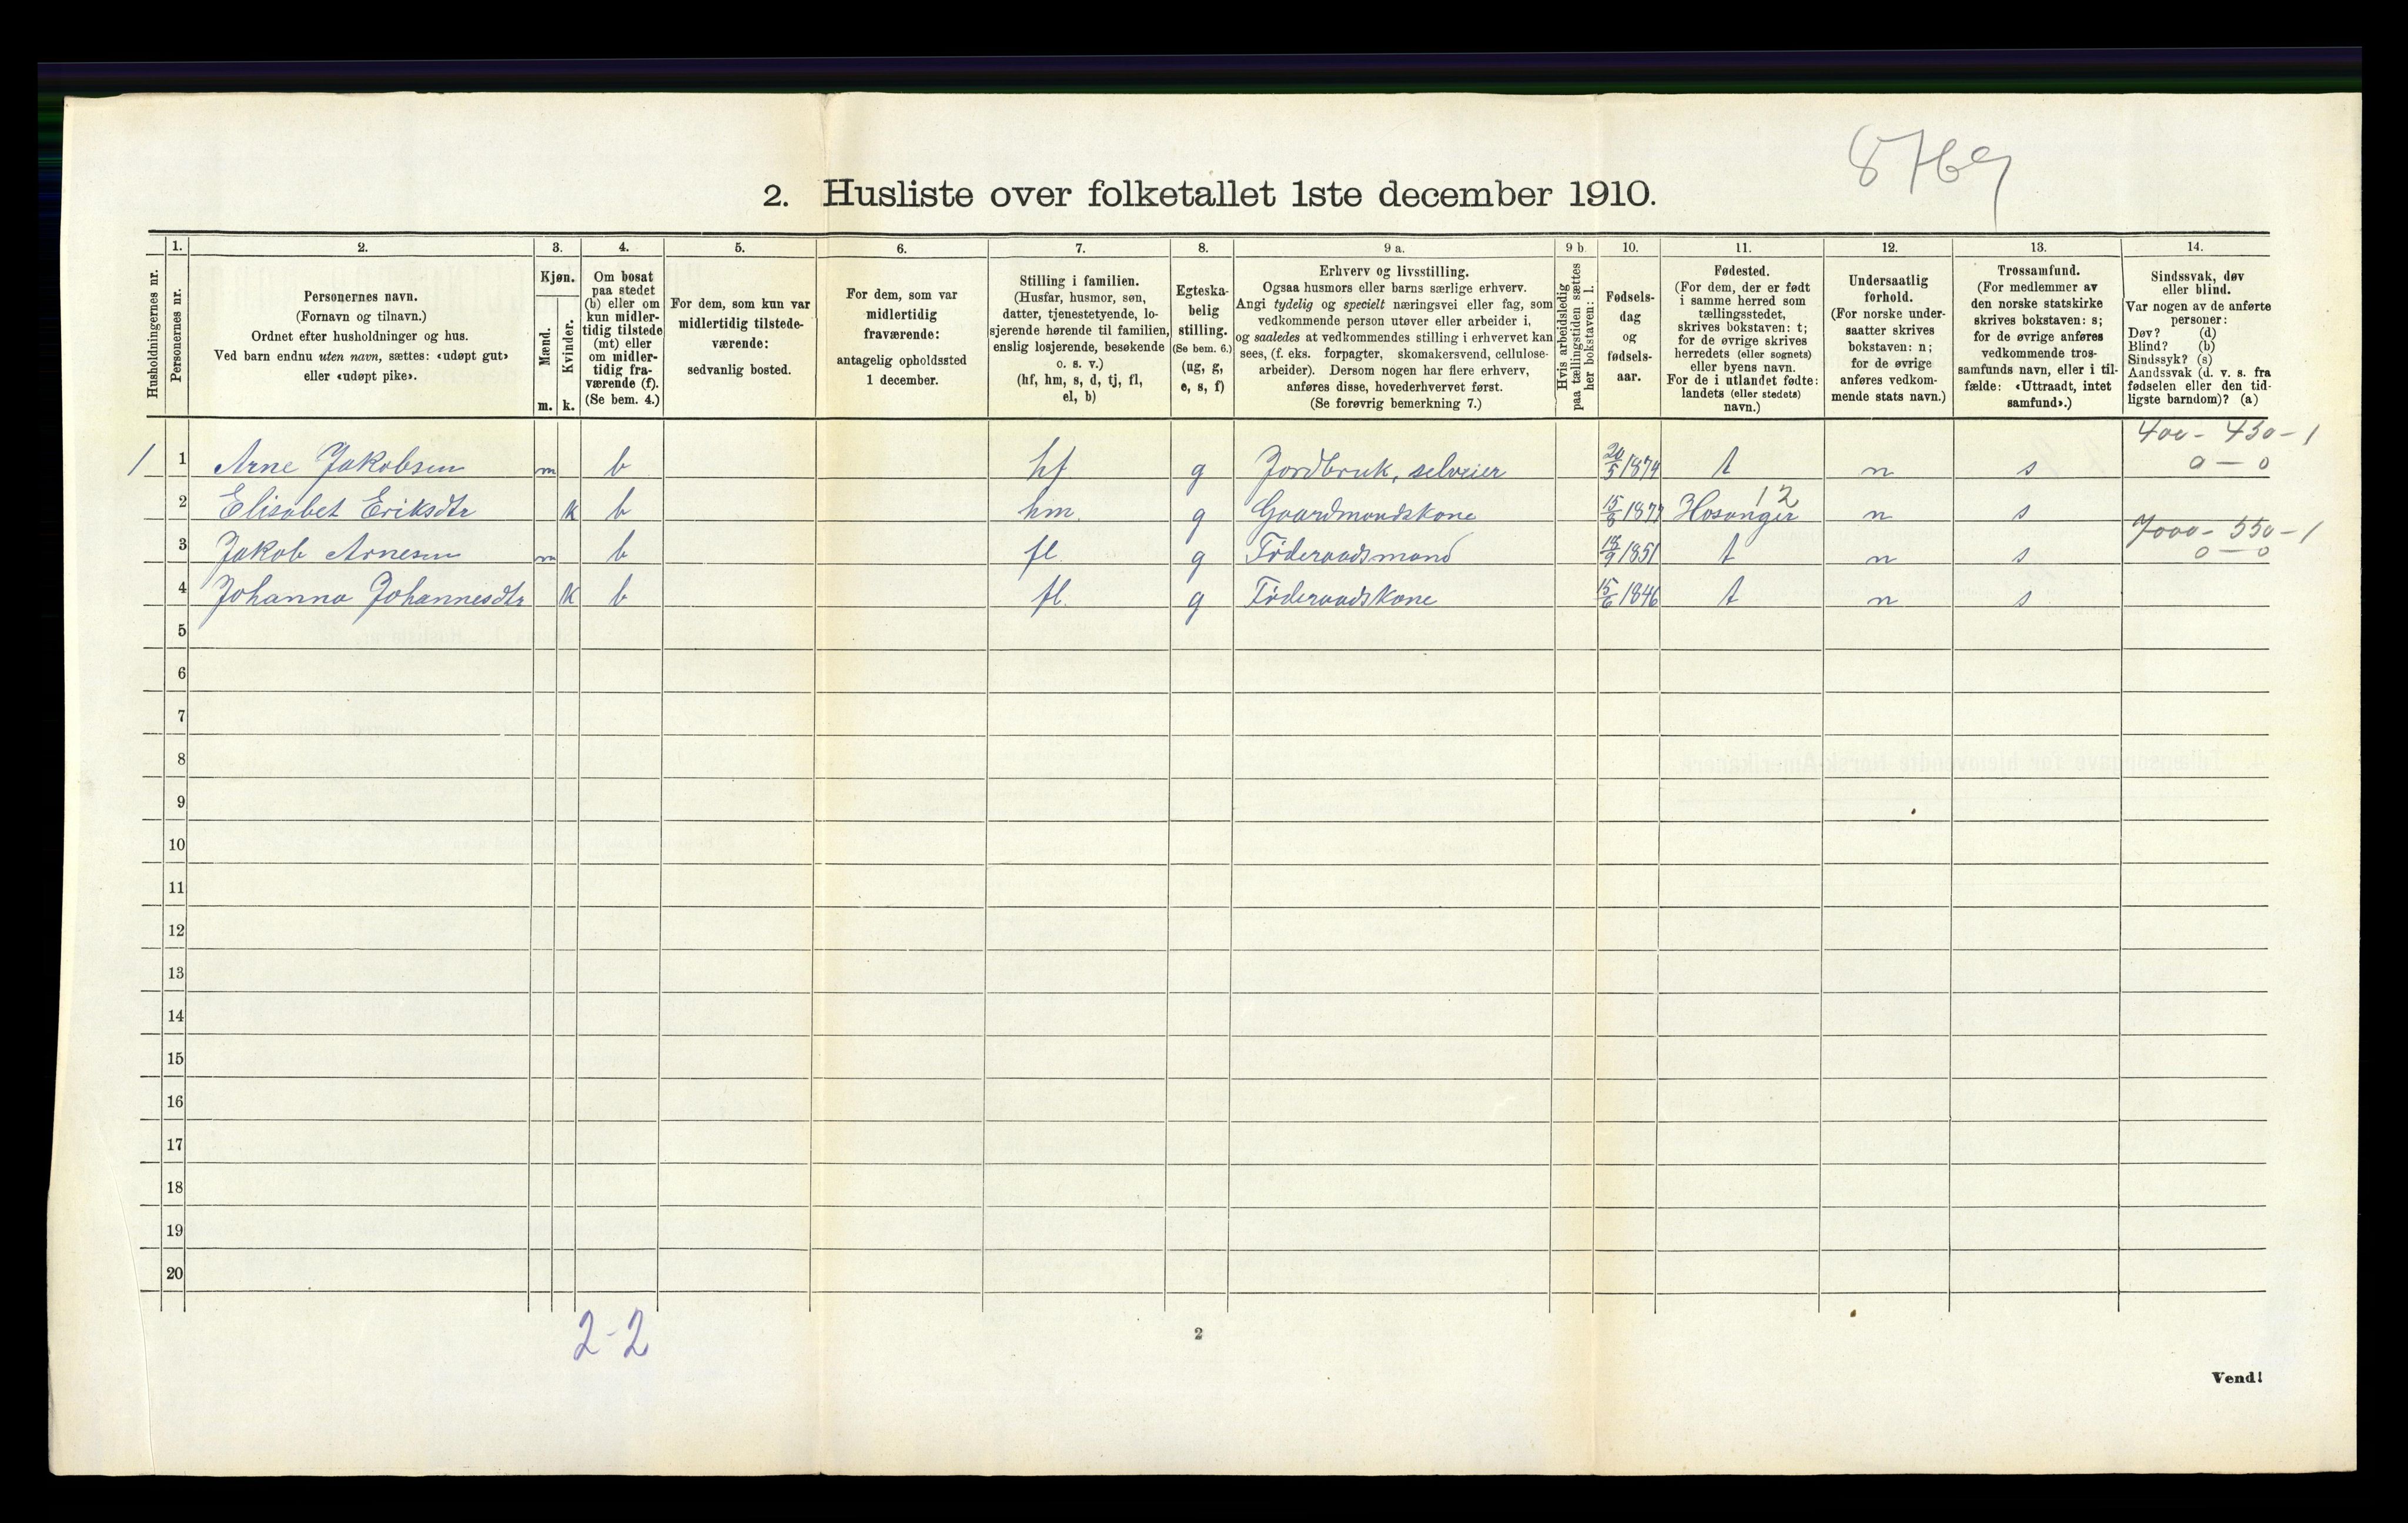 8769
2. Husliste over folketallet 1ste december 1910.
Husholdningernes nr.
1.
Personernes nr.
2.
Personernes navn.
(Fornavn og tilnavn.)
Ordnet efter husholdninger og hus.
Ved barn endnu uten navn, sættes: «udøpt gut»
eller «udøpt pike».
3.
Kjøn.
Mænd.
m.
Kvinder.
k.
4.
Om bosat
paa stedet
(b) eller om
kun midler-
tidig tilstede
(mt) eller
om midler-
tidig fra-
værende (f).
(Se bem. 4.)
5.
For dem, som kun var
midlertidig tilstede-
værende:
sedvanlig bosted.
6.
For dem, som var
midlertidig
fraværende:
antagelig opholdssted
1 december.
7.
Stilling i familien.
(Husfar, husmor, søn,
datter, tjenestetyende, lo-
sjerende hørende til familien,
enslig losjerende, besøkende
o. s. v.)
(hf, hm, s, d, tj, fl,
el, b)
8.
Egteska-
belig
stilling.
(Se bem. 6.)
(ug, g,
e, s, f)
9 a.
Erhverv og livsstilling.
Ogsaa husmors eller barns særlige erhverv.
Angi tydelig og specielt næringsvei eller fag, som
vedkommende person utøver eller arbeider i,
og saaledes at vedkommendes stilling i erhvervet kan
sees, (f. eks. forpagter, skomakersvend, cellulose-
arbeider). Dersom nogen har flere erhverv,
anføres disse, hovederhvervet først.
(Se forøvrig bemerkning 7.)
9 b.
Hvis arbeidsledig
paa tællingstiden sættes
her bokstaven: l.
10.
Fødsels-
dag
og
fødsels-
aar.
11.
Fødested.
(For dem, der er født
i samme herred som
tællingsstedet,
skrives bokstaven: t;
for de øvrige skrives
herredets (eller sognets)
eller byens navn.
For de i utlandet fødte:
landets (eller stedets)
navn.)
12.
Undersaatlig
forhold.
(For norske under-
saatter skrives
bokstaven: n;
for de øvrige
anføres vedkom-
mende stats navn.)
13.
Trossamfund.
(For medlemmer av
den norske statskirke
skrives bokstaven: s;
for de øvrige anføres
vedkommende tros-
samfunds navn, eller i til-
fælde: «Uttraadt, intet
samfund».)
14.
Sindssvak, døv
eller blind.
Var nogen av de anførte
personer:
Døv? (d)
Blind? (b)
Sindssyk? (s)
Aandssvak (d. v. s. fra
fødselen eller den tid-
ligste barndom)? (a)
400 - 430 - 1
1 1 Arne Jakobsen m b hf g Jordbruk, selveier 1874 t n s 0 — 0
12
2 Elisabet Eriksdtr k b hm g Gaardmandskone 15/8 1877 Hosanger n s
7000 - 550 - 1
3 Jakob Arnesen m b fl g Føderaadsmand 1851 t n s 0 — 0
4 Johanna Johannesdtr k b fl. g Føderaadskone 15/6 1846 t n s
5
6
7
8
9
10
11
12
13
14
15
16
17
18
19
20
2-2
2
Vend!